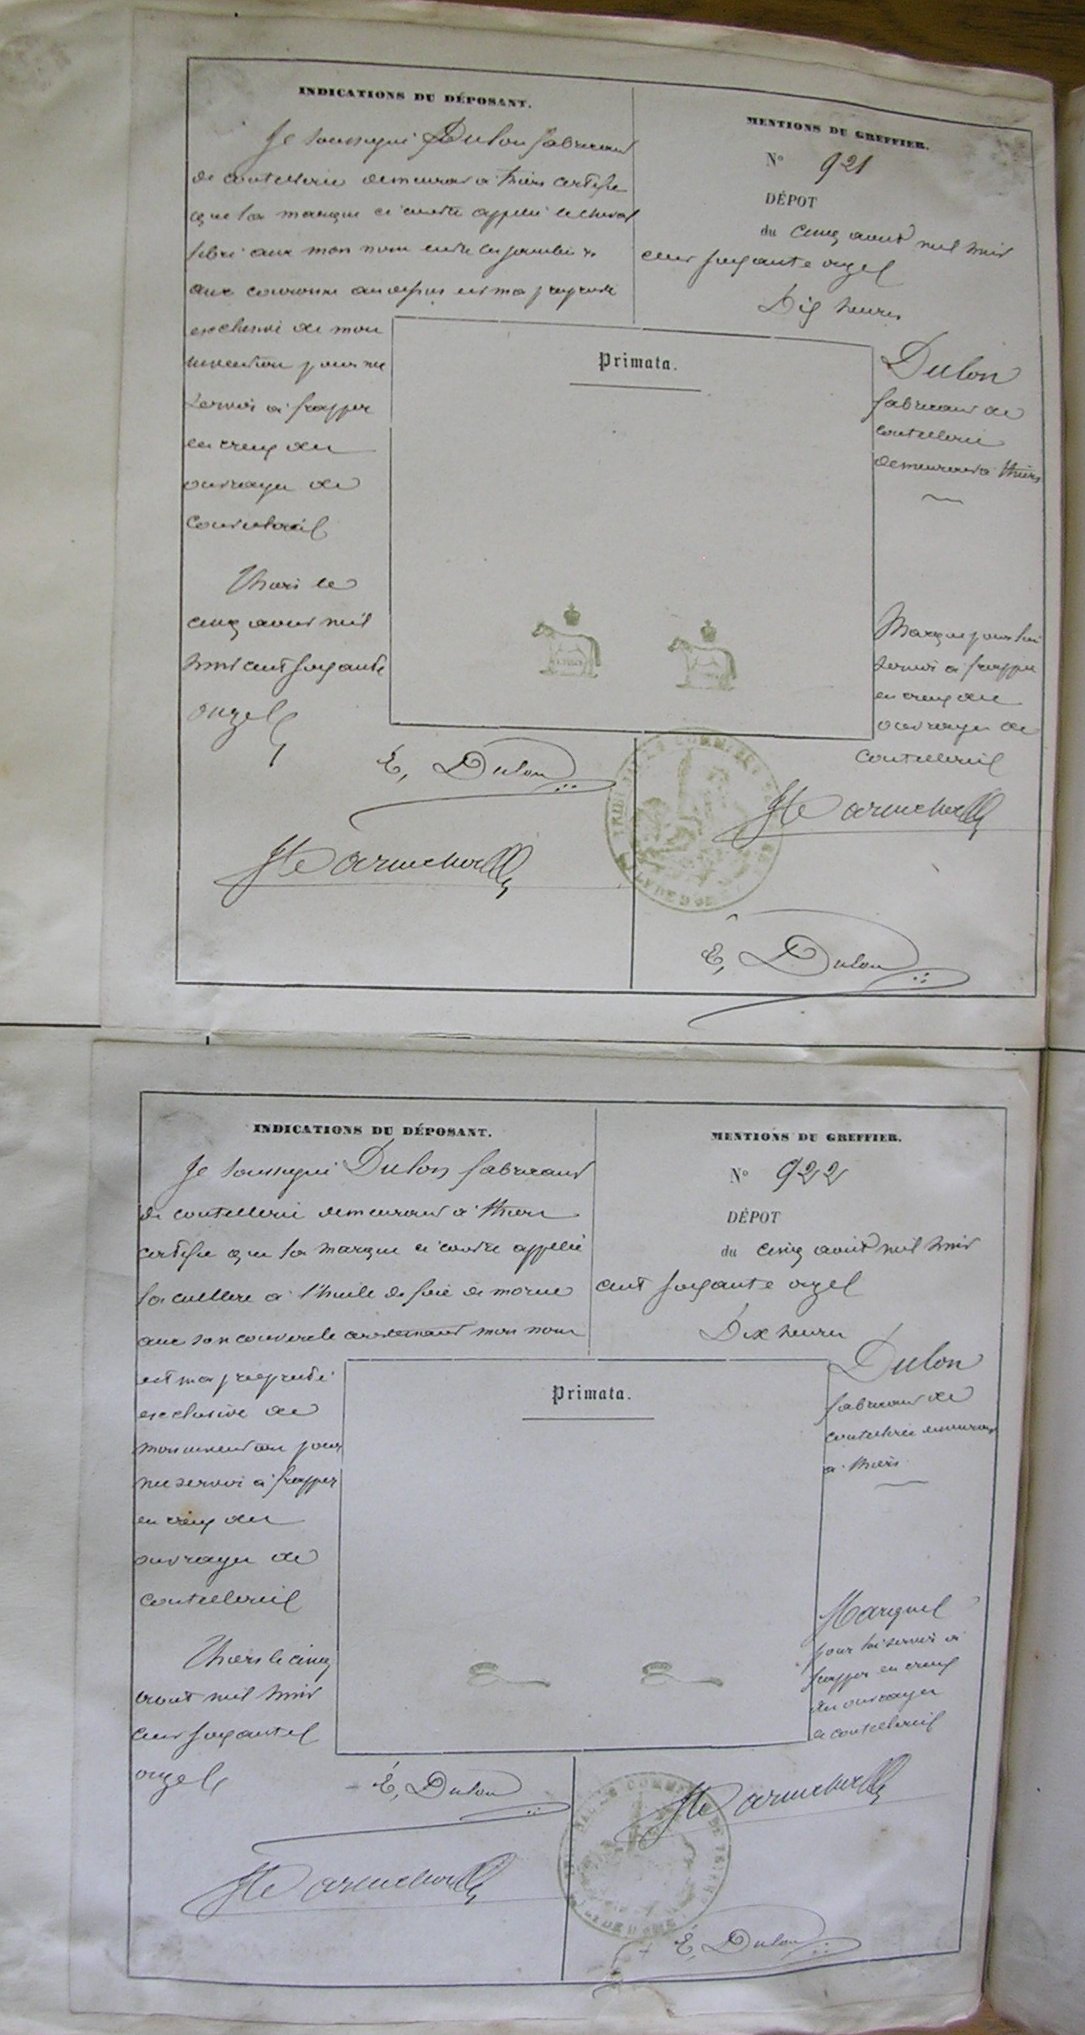 INDICATIONS DU DÉPOSANT.
Je soussigné Dulon fabricant
de coutellerie demeurant à thiers certifie
que la marque ci contre appellé le cheval
avec mon nom entre les jambes &
une couronne au dessus est ma propriété
exclusive de mon
invention pour me
servir à frapper
en creux des
ouvrages de
coutellerie
Thiers le
cinq aout mil
huit cent soixante
onze
MENTIONS DU GREFFIER.
N° 921
DÉPOT
du cinq aout mil huit
cent soixante onze
Dix heures
Dulon
fabricant de
coutellerie
demeurant à thiers
Primata.
Marque pour lui
servir à frapper
en creux des
ouvrages de
coutellerie
E, Dulon
E, Dulon
INDICATIONS DU DÉPOSANT.
Je soussigné Dulon fabricant
de coutellerie demeurant à thiers
certifie que la marque ci contre appellé
la cuillere à l'huile de foie de morue
avec son couvercle contenant mon nom
est ma propriété
exclusive de
mon invention pour
me servir à frapper
en creux des
ouvrages de
coutellerie
Thiers le cinq
aout mil huit
cent soixante
onze
MENTIONS DU GREFFIER.
N° 922
DÉPOT
du cinq aout mil huit
cent soixante onze
Dix heures
Dulon
fabricant de
coutellerie demeurant
à thiers
Primata.
Marque
pour lui servir à
frapper en creux
des ouvrages
de coutellerie
E, Dulon
E, Dulon